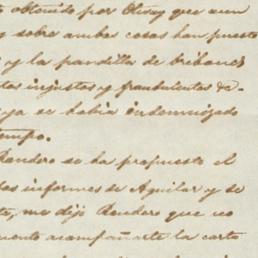 obtenido por Olvoy que aun
y sobre ambas cosas han puesto
y la pandilla de bribones
tos injustos y fraudulentos de-
ya se había indemnizado
tiempo.
Rendero se ha propuesto el
los informes de Aguilar y se
me dijo Rendero que no
acompañarte la carta